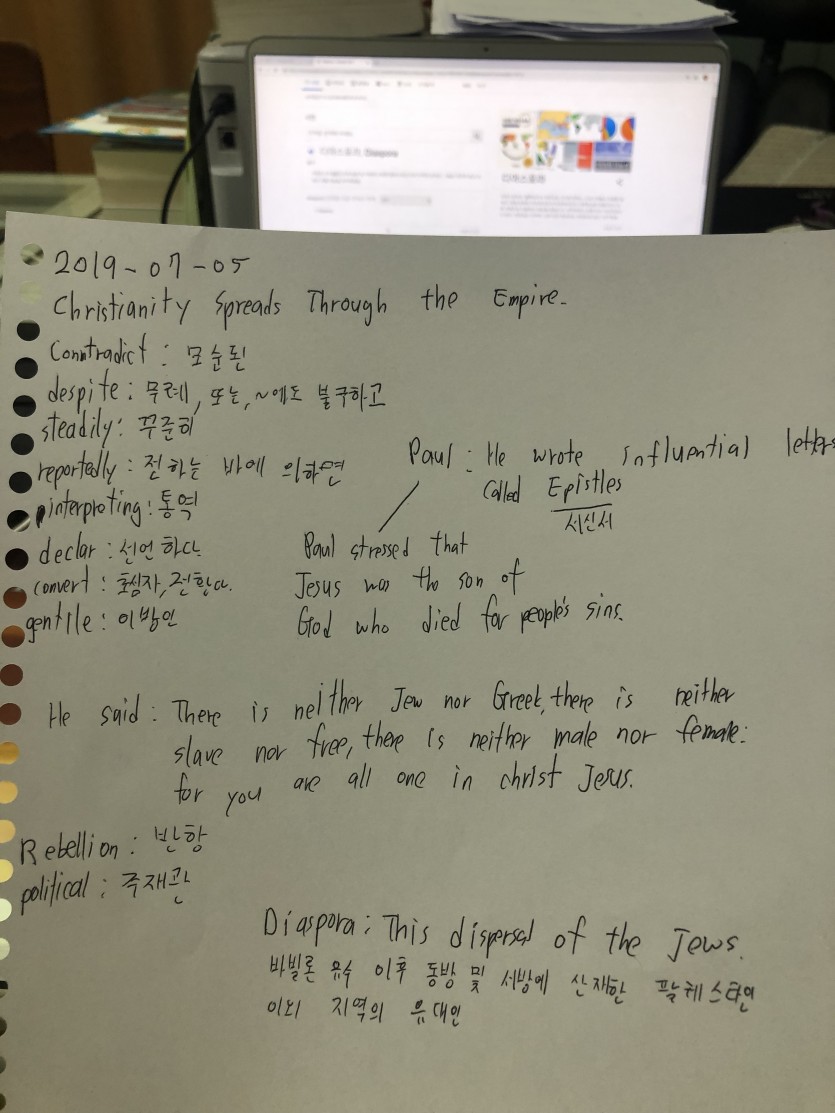 디아스포라, Diaspora
디아스포라
2019-07-05
Christianity Spreads Through the Empire.
Conntradict : 모순된
despite : 무례, 또는, ~에도 불구하고
steadily : 꾸준히
reportedly : 전하는 바에 의하면
Paul : He wrote influential letters
called Epistles
서신서
interproting : 통역
declar : 선언하다.
convert : 호심자, 전환다.
gentile : 이방인
Paul stressed that
Jesus was the son of
God who died for people's sins.
He said : There is neither Jew nor Greek, there is neither
slave nor free, there is neither male nor female:
for you are all one in christ Jesus.
Rebellion : 반항
political : 주재관
Diaspora : This dispersal of the Jews.
바빌론 유수 이후 동방 및 서방에 산재한 팔레스타인
이외 지역의 유대인